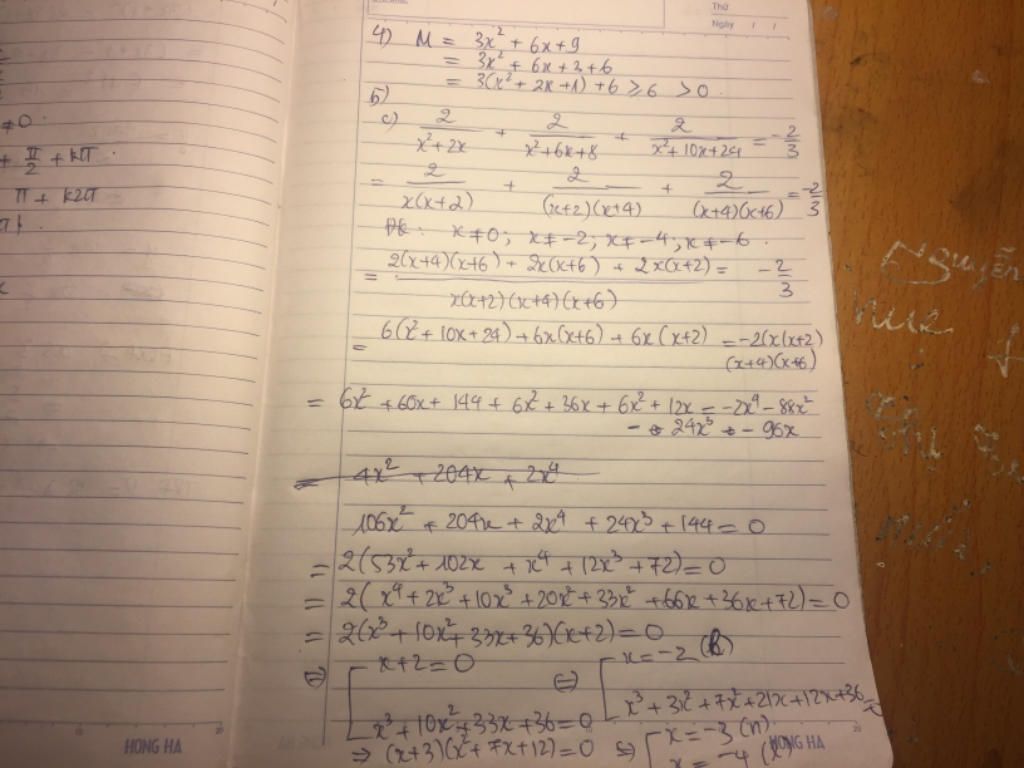 Thứ
Ngày / /
4) M = 3x² + 6x + 9
= 3x² + 6x + 3 + 6
= 3(x² + 2x + 1) + 6 ⩾ 6 > 0.
5)
c) 2/(x²+2x) + 2/(x²+6x+8) + 2/(x²+10x+24) = -2/3
= 2/(x(x+2)) + 2/((x+2)(x+4)) + 2/((x+4)(x+6)) = -2/3
ĐK: x ≠ 0; x ≠ -2; x ≠ -4; x ≠ -6.
= (2(x+4)(x+6) + 2x(x+6) + 2x(x+2))/(x(x+2)(x+4)(x+6)) = -2/3
= 6(x²+10x+24) + 6x(x+6) + 6x(x+2) = -2(x(x+2)
(x+4)(x+6)
= 6x² + 60x + 144 + 6x² + 36x + 6x² + 12x = -2x⁴ - 88x²
- 24x³ - 96x
= 4x² + 204x + 2x⁴
106x² + 204x + 2x⁴ + 24x³ + 144 = 0
= 2(53x² + 102x + x⁴ + 12x³ + 72) = 0
= 2(x⁴ + 2x³ + 10x³ + 20x² + 33x² + 66x + 36x + 72) = 0
= 2(x³ + 10x² + 33x + 36)(x+2) = 0
⇔ [ x + 2 = 0 ⇔ [ x = -2 (l)
x³ + 10x² + 33x + 36 = 0 x³ + 3x² + 7x² + 21x + 12x + 36 =
⇒ (x+3)(x² + 7x + 12) = 0 ⇔ [ x = -3 (n)
x = -4 (l)
HONG HA
HONG HA
≠ 0.
+ π/2 + kπ.
π + k2π
Nguyễn